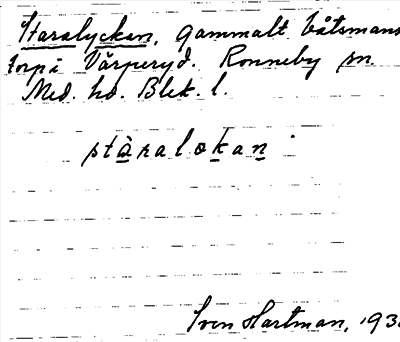 Staralyckan, gammalt båtsmans
torp i Värperyd. Ronneby sn.
Med. hd. Blek. l.
stàralokan
Sven Hartman, 193